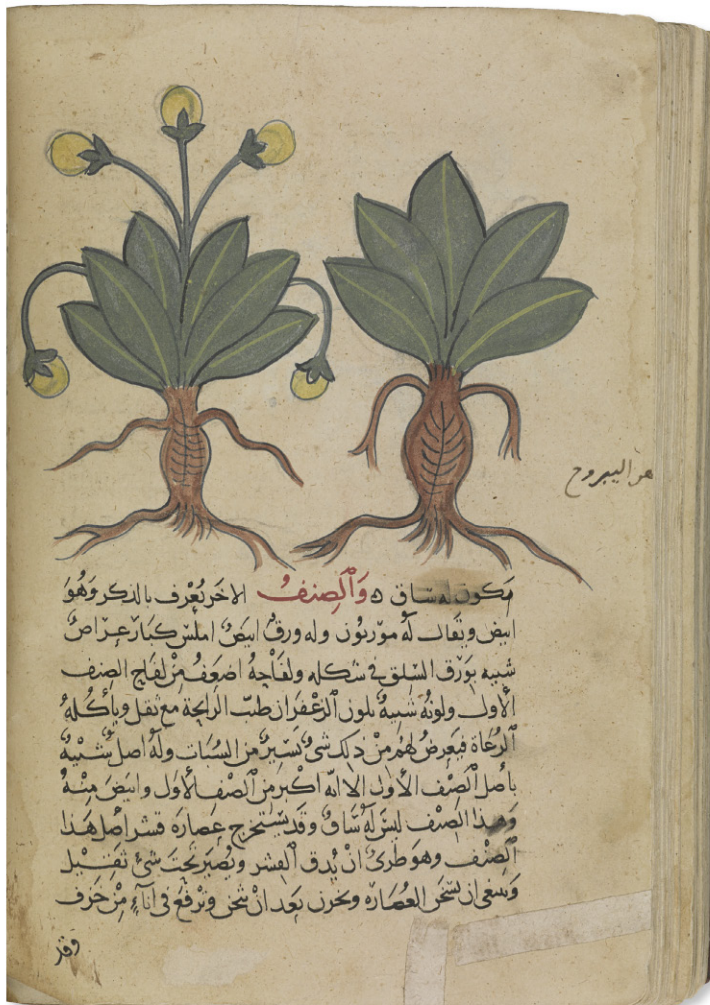 هو اليبروح
يكون له ساق ه وَالصِنفُ الاخر يُعْرف بالذكر وَهُوَ
ابيض ويقال لَهُ موريون وله ورقٌ ابيَضٌ املس كبَارٌ عِرَاضٌ
شبيه بوَرَق السَلق فى شكله ولفَاحِهُ اضعَفُ مِنْ لفاح الصنف
الأول ولونُه شَبِيهٌ بلون الزعْفران طيبّ الرايحة مع ثقل ويأكلهُ
الرُعَاة فيَعرضُ لهُم مِنْ ذلك شىٌ يَسِيرٌ من السُبات وَلَهُ اصل شَبيهٌ
باصل الصنف الأول الا انّه اكبر من الصنف الأول وابيَض مِنهُ
وَهذا الصِنف ليسَ لَهُ سَاقٌ وَقد يسْتخرج عصارَة قشر اصل هَذا
الصِنف وهوَ طرىٌ انْ يُدق القشر ويُصَير تحتَ شئٍ ثقيل
وينبغى ان تسخن العصَارة وتخزن بَعد انْ تثخن وترفعَ فى انآءٍ مِنْ خزف
وقد